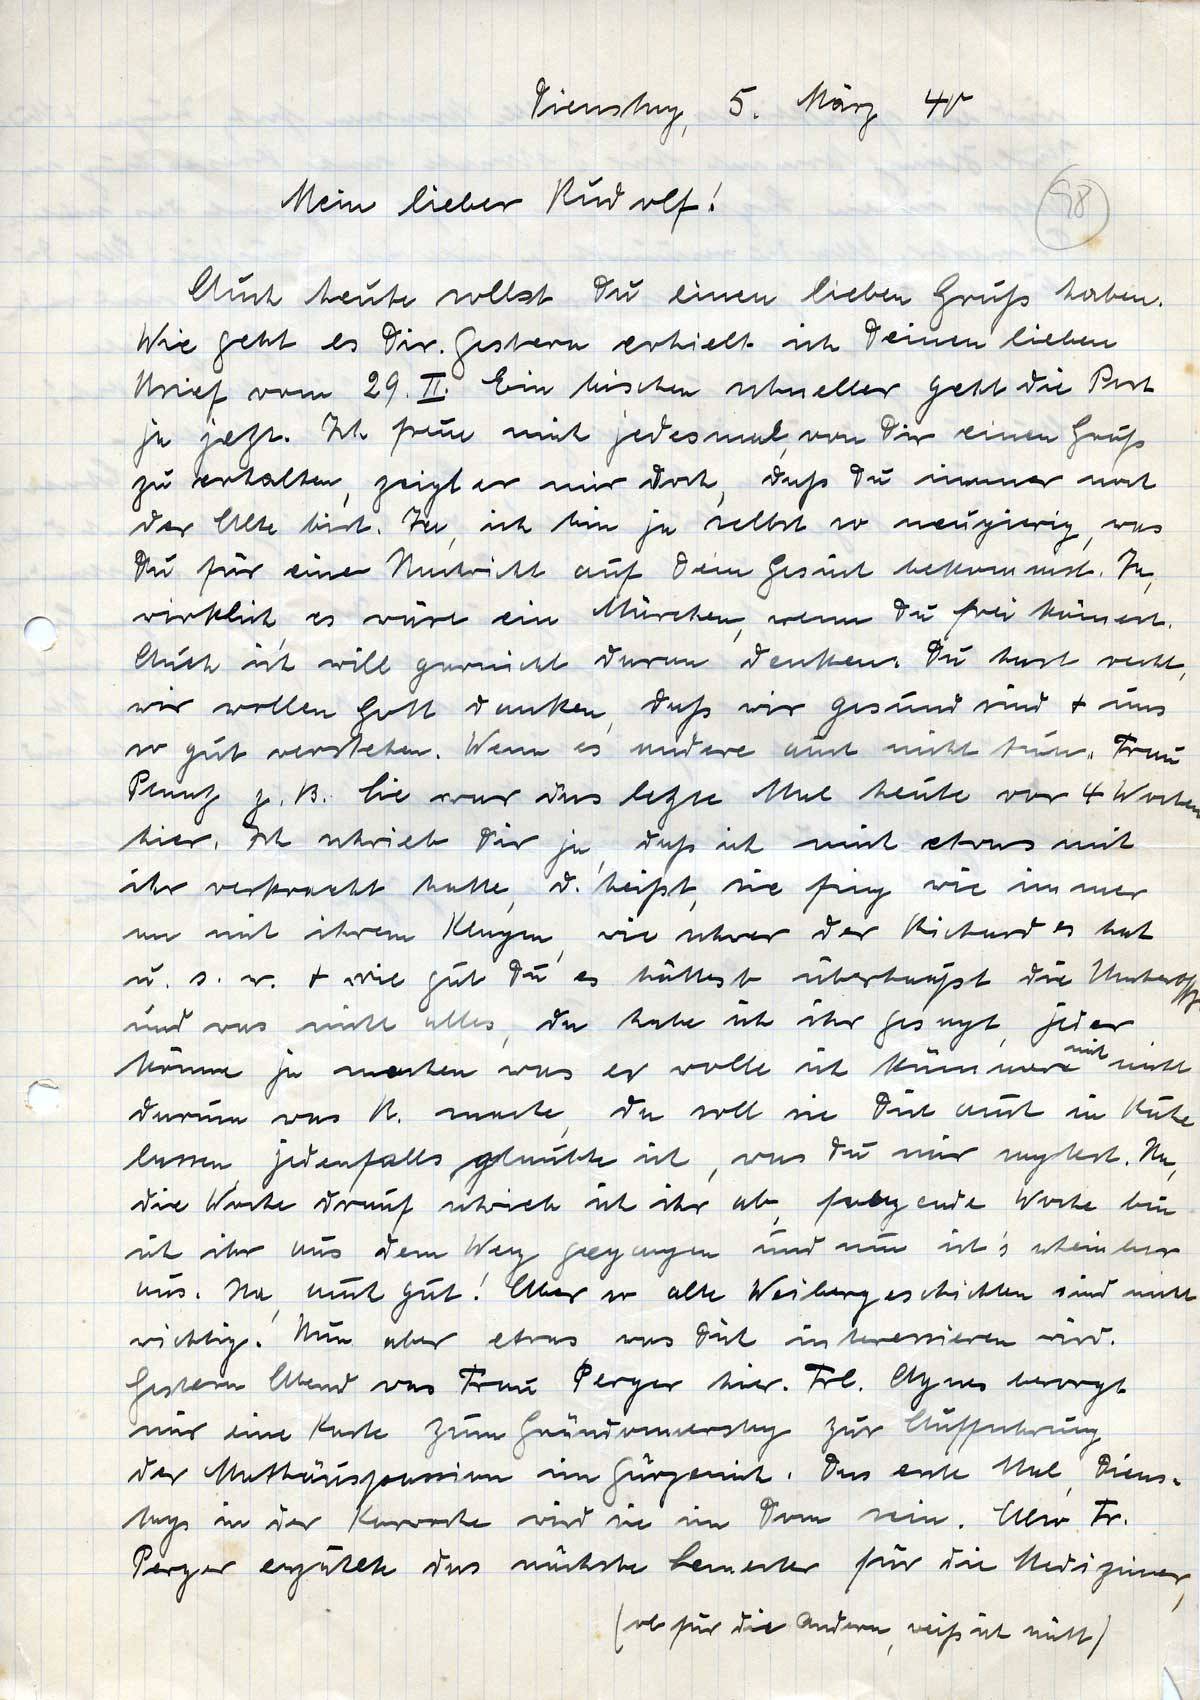 Dienstag, 5. März 40
98
Mein lieber Rudolf!
Auch heute sollst Du einen lieben Gruß haben.
Wie geht es Dir. Gestern erhielt ich Deinen lieben
Brief vom 29. II. Ein bischen schneller geht die Post
ja jetzt. Ich freue mich jedesmal, von Dir einen Gruß
zu erhalten, zeigt er mir doch, daß Du immer noch
der Alte bist. Ja, ich bin ja selbst so neugierig, was
Du für eine Nachricht auf Dein Gesuch bekommst. Ja,
wirklich, es wäre ein Märchen, wenn Du frei kämest.
Auch ich will garnicht daran denken. Du hast recht,
wir wollen Gott danken, daß wir gesund sind + uns
so gut verstehen. Wenn es andere auch nicht tun. Frau
z. B. Sie war das letzte Mal heute vor 4 Wochen
hier. Ich schrieb Dir ja, daß ich mich etwas mit
ihr verkracht hatte, d. heißt, sie fing wie immer
an mit ihrem Klagen, wie schwer der Richard es hat
u. s. w. + wie gut Du es hättest überhaupt die
und was nicht alles, da habe ich ihr gesagt, jeder
könne ja machen was er wolle ich kümmere mich nicht
darum was R. mache, da soll sie Dich auch in Ruhe
lassen, jedenfalls glaubte ich, was Du mir sagtest. Na,
die Woche drauf schrieb ich ihr ab, folgende Woche bin
ich ihr aus dem Weg gegangen und nun ist's scheinbar
aus. Na, auch gut! Aber so alte Weibergeschichten sind nicht
wichtig. Nun aber etwas was Dich interessieren wird.
Gestern Abend war Frau Perger hier. Frl. Agnes besorgt
mir eine Karte zum Gründonnerstag zur Aufführung
der Matthäuspassion im Gürzenich. Das erste Mal, Diens-
tags in der Karwoche wird sie im Dom sein. Also Fr.
Perger erzählte das nächste Semester für die Mediziner,
(ob für die Andern, weiß ich nicht)